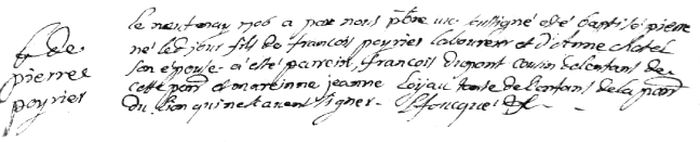 b. de
pierre
poyrier
le neuf may 1706 a par nous pbre vic. soussigné esté baptisé pierre
né led jour fils de francois poyrier laboureur et d'Anne chatel
son epouse a esté parein francois dupont cousin de lenfant de
cette par et mareinne jeanne loyau tante de lenfant de la par
du lion qui ne scavent signer